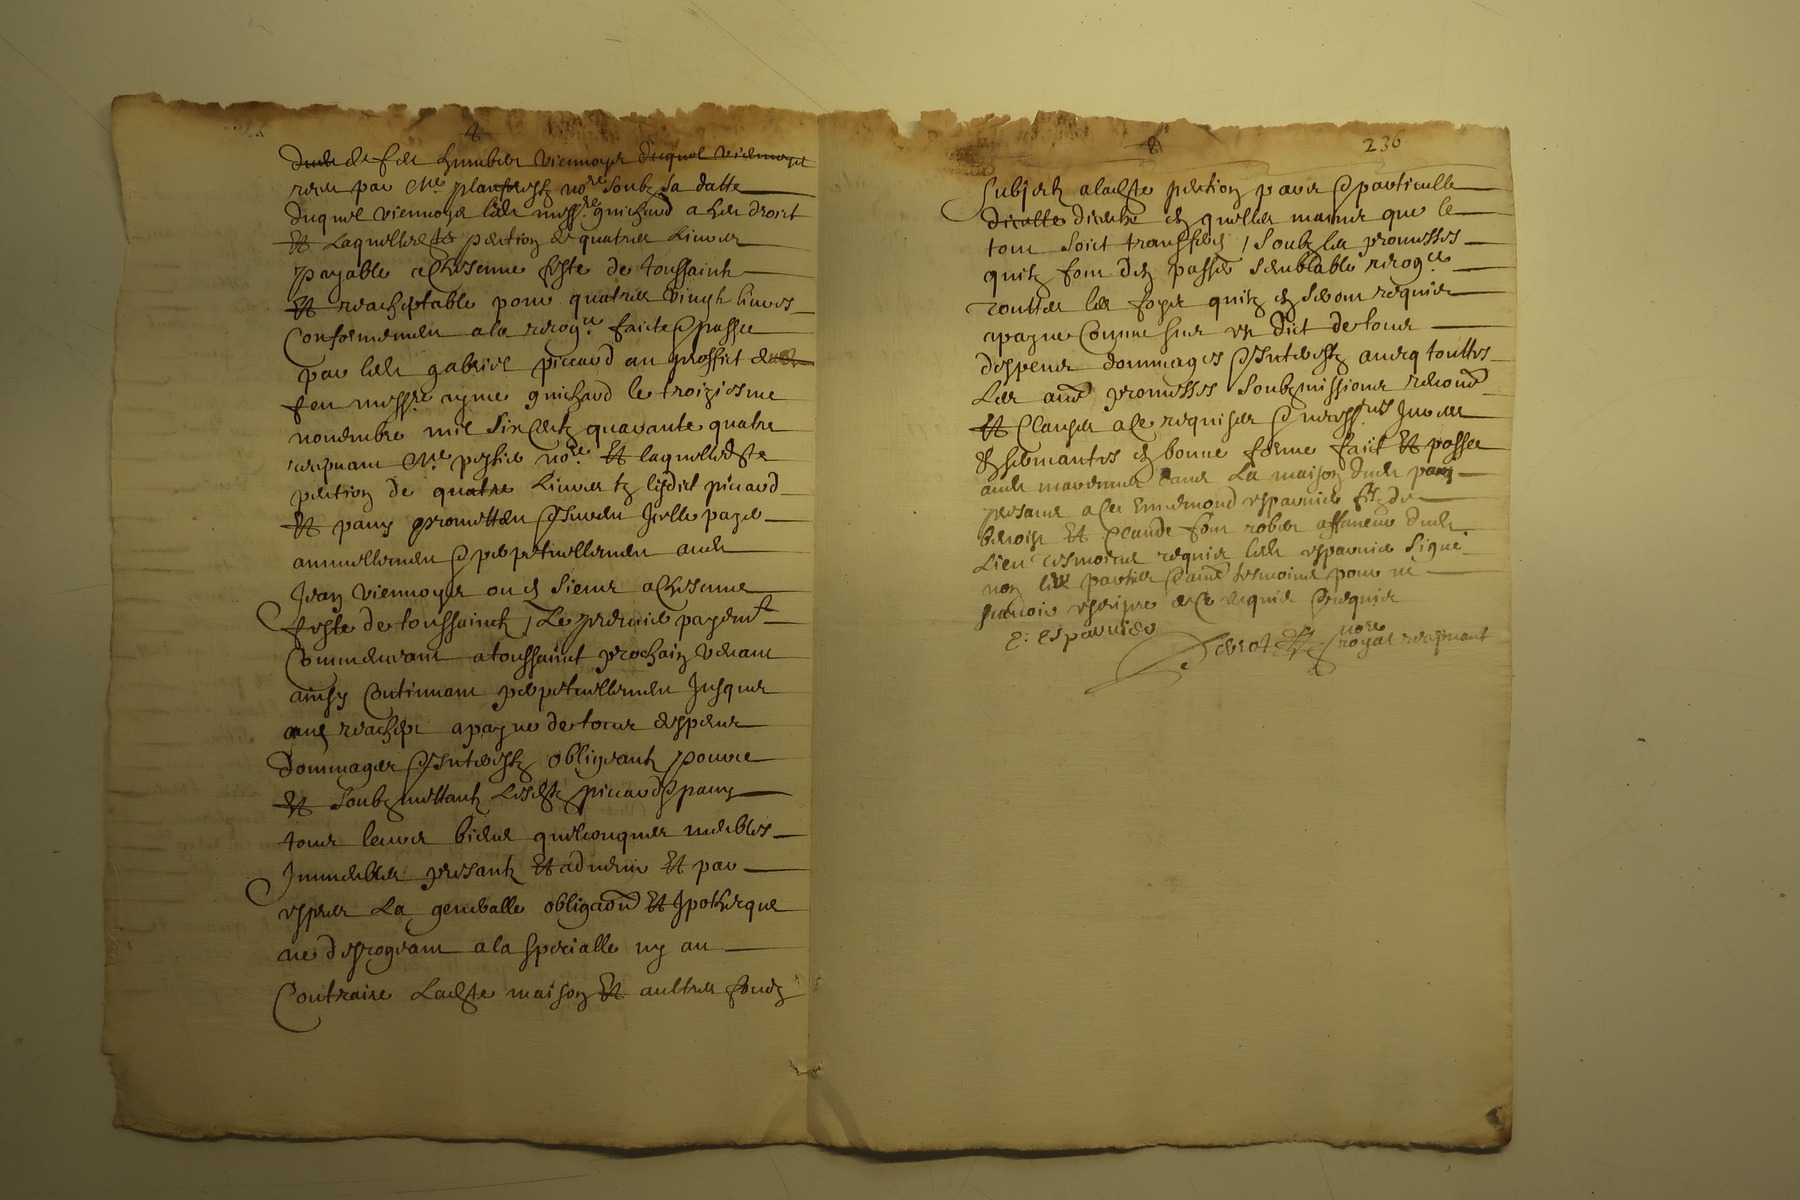 de feu humbert viennoys duquel viennoys
receu par Me no.re soubz sa datte
duquel viennoys led. mess.re guichard a heu droict
Et laquelle pention de quatre Livres
payable a chescune feste de toussainctz
Et reacheptable pour quatre vingtz livres
Conformement a la recog.ce faicte & passee
par led. gabriel piccard au proffict
feu mess.re ayme guichard le troiziesme
novembre mil six centz quarante quatre
recepvant Me no.re Et laquelle dste
pention de quatre Livres tz lesdict piccard
Et pany promettent & Jcelle paye
annuellement & perpetuellement aud.
Jean viennoys ou es siens a chescune
feste de toussainctz / Le premier payemt
Commencant a toussainct prochain venant
ainsy Continuant perpetuellement Jusques
aud reachept a payne de tous despens
Dommages & Jnterestz obligeantz pour ce
Et soubzmettantz Lesdtz piccard & pany
tous leurs biens quelconques meubles
Jmmeubles presantz Et advenir Et par
expres La generalle obligaon Et Jpotheque
ne desrogeant a la specialle ny au
Contraire Ladste maison Et aultres fondz
236
Subjectz a ladste pention par & particulle
dicelle en quelles mains que le
tout soict transferes / soubz les promesses
quilz font den passer semblable recog.ce
touttes les foys quilz en seront requis
a payne Comme sus est dict de tous
despens dommages & Jnterestz avecq touttes
Les aues promesses soubzmissions renonons
Et Clauses a ce requises & necess.res Jnserees
En bonne forme faict Et passe
aud. dans La maison dud. pany
presans a ce Ennemond espaunier filz de
benoist Et Claude affaneur dud.
Lieu tesmoins requis led. espaunier signe
non les parties & aue tesmoins pour ne
scavoir escripre de ce enquis & requis
E. Espaunier
no.re royal recepvant